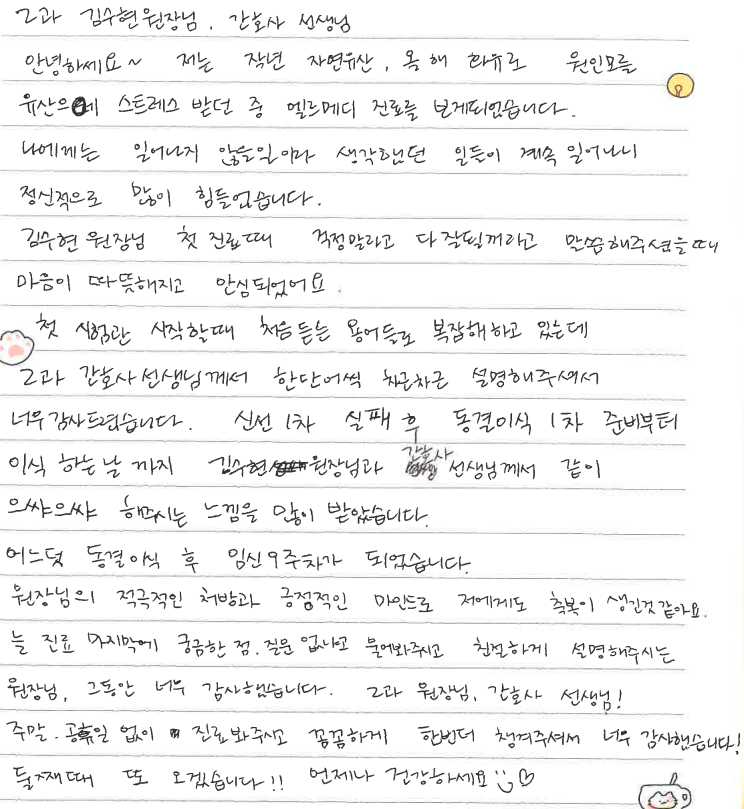 2과 김수현원장님, 간호사 선생님
안녕하세요~ 저는 작년 자연유산, 올해 화유로 원인모를
유산으로 스트레스 받던 중 엘르메디 진료를 보게되었습니다.
나에게는 일어나지 않을일이라 생각했던 일들이 계속 일어나니
정신적으로 많이 힘들었습니다.
김수현 원장님 첫 진료때 걱정말라고 다 잘될꺼라고 말씀해주셨을때
마음이 따뜻해지고 안심되었어요.
첫 시험관 시작할때 처음듣는 용어들로 복잡해하고 있는데
2과 간호사선생님께서 한단어씩 차근차근 설명해주셔서
너무감사드렸습니다. 신선 1차 실패 후 동결이식 1차 준비부터
이식 하는날 까지 김수현 원장님과 간호사 선생님께서 같이
으쌰으쌰 해주시는 느낌을 많이 받았습니다.
어느덧 동결이식 후 임신9주차가 되었습니다.
원장님의 적극적인 처방과 긍정적인 마인드로 저에게도 축복이 생긴것같아요.
늘 진료 마지막에 궁금한 점, 질문 없냐고 물어봐주시고 친절하게 설명해주시는
원장님, 그동안 너무 감사했습니다. 2과 원장님, 간호사 선생님!
주말, 공휴일 없이 진료봐주시고 꼼꼼하게 한번더 챙겨주셔서 너무 감사했습니다!
둘째때 또 오겠습니다!! 언제나 건강하세요 :) ♡